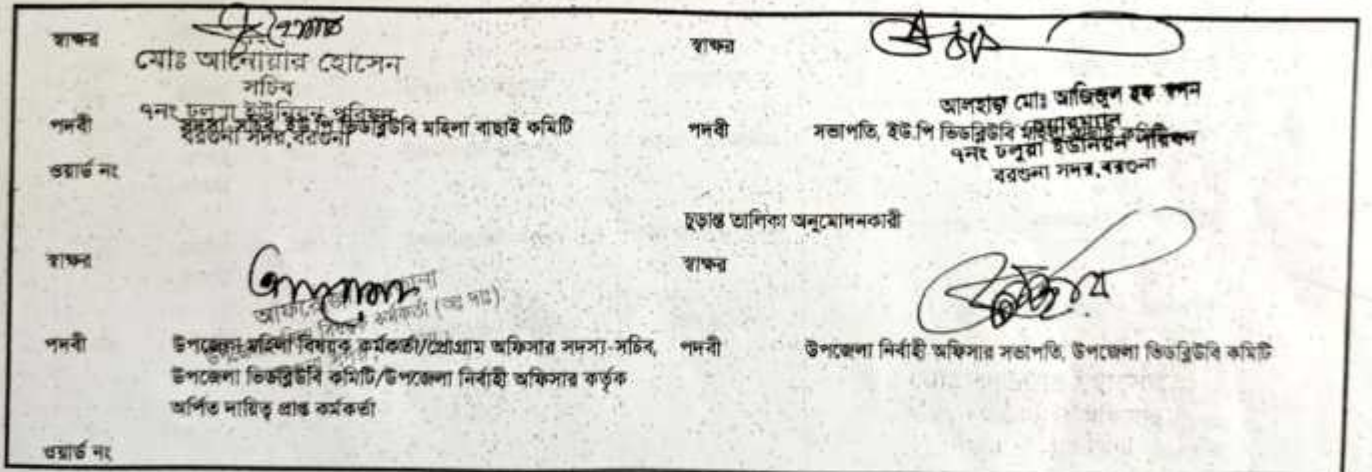 স্বাক্ষর
মোঃ আনোয়ার হোসেন
সচিব
৭নং ঢলুয়া ইউনিয়ন পরিষদ
বরগুনা সদর,বরগুনা
পদবী সচিব, ইউ.পি ভিডব্লিউবি মহিলা বাছাই কমিটি
ওয়ার্ড নং
স্বাক্ষর
আলহাজ্ব মোঃ আজিজুল হক স্বপন
চেয়ারম্যান
৭নং ঢলুয়া ইউনিয়ন পরিষদ
বরগুনা সদর,বরগুনা
পদবী সভাপতি, ইউ.পি ভিডব্লিউবি মহিলা বাছাই কমিটি
চুড়ান্ত তালিকা অনুমোদনকারী
স্বাক্ষর
বিষয়ক কর্মকর্তা (অঃ দাঃ)
পদবী উপজেলা মহিলা বিষয়ক কর্মকর্তা/প্রোগ্রাম অফিসার সদস্য-সচিব,
উপজেলা ভিডব্লিউবি কমিটি/উপজেলা নির্বাহী অফিসার কর্তৃক
অর্পিত দায়িত্ব প্রাপ্ত কর্মকর্তা
ওয়ার্ড নং
স্বাক্ষর
পদবী উপজেলা নির্বাহী অফিসার সভাপতি, উপজেলা ভিডব্লিউবি কমিটি